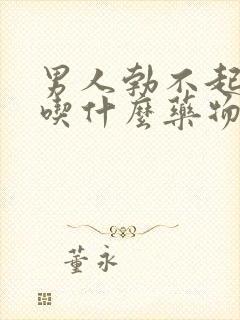 男人勃不起
喫什麼藥物
董永